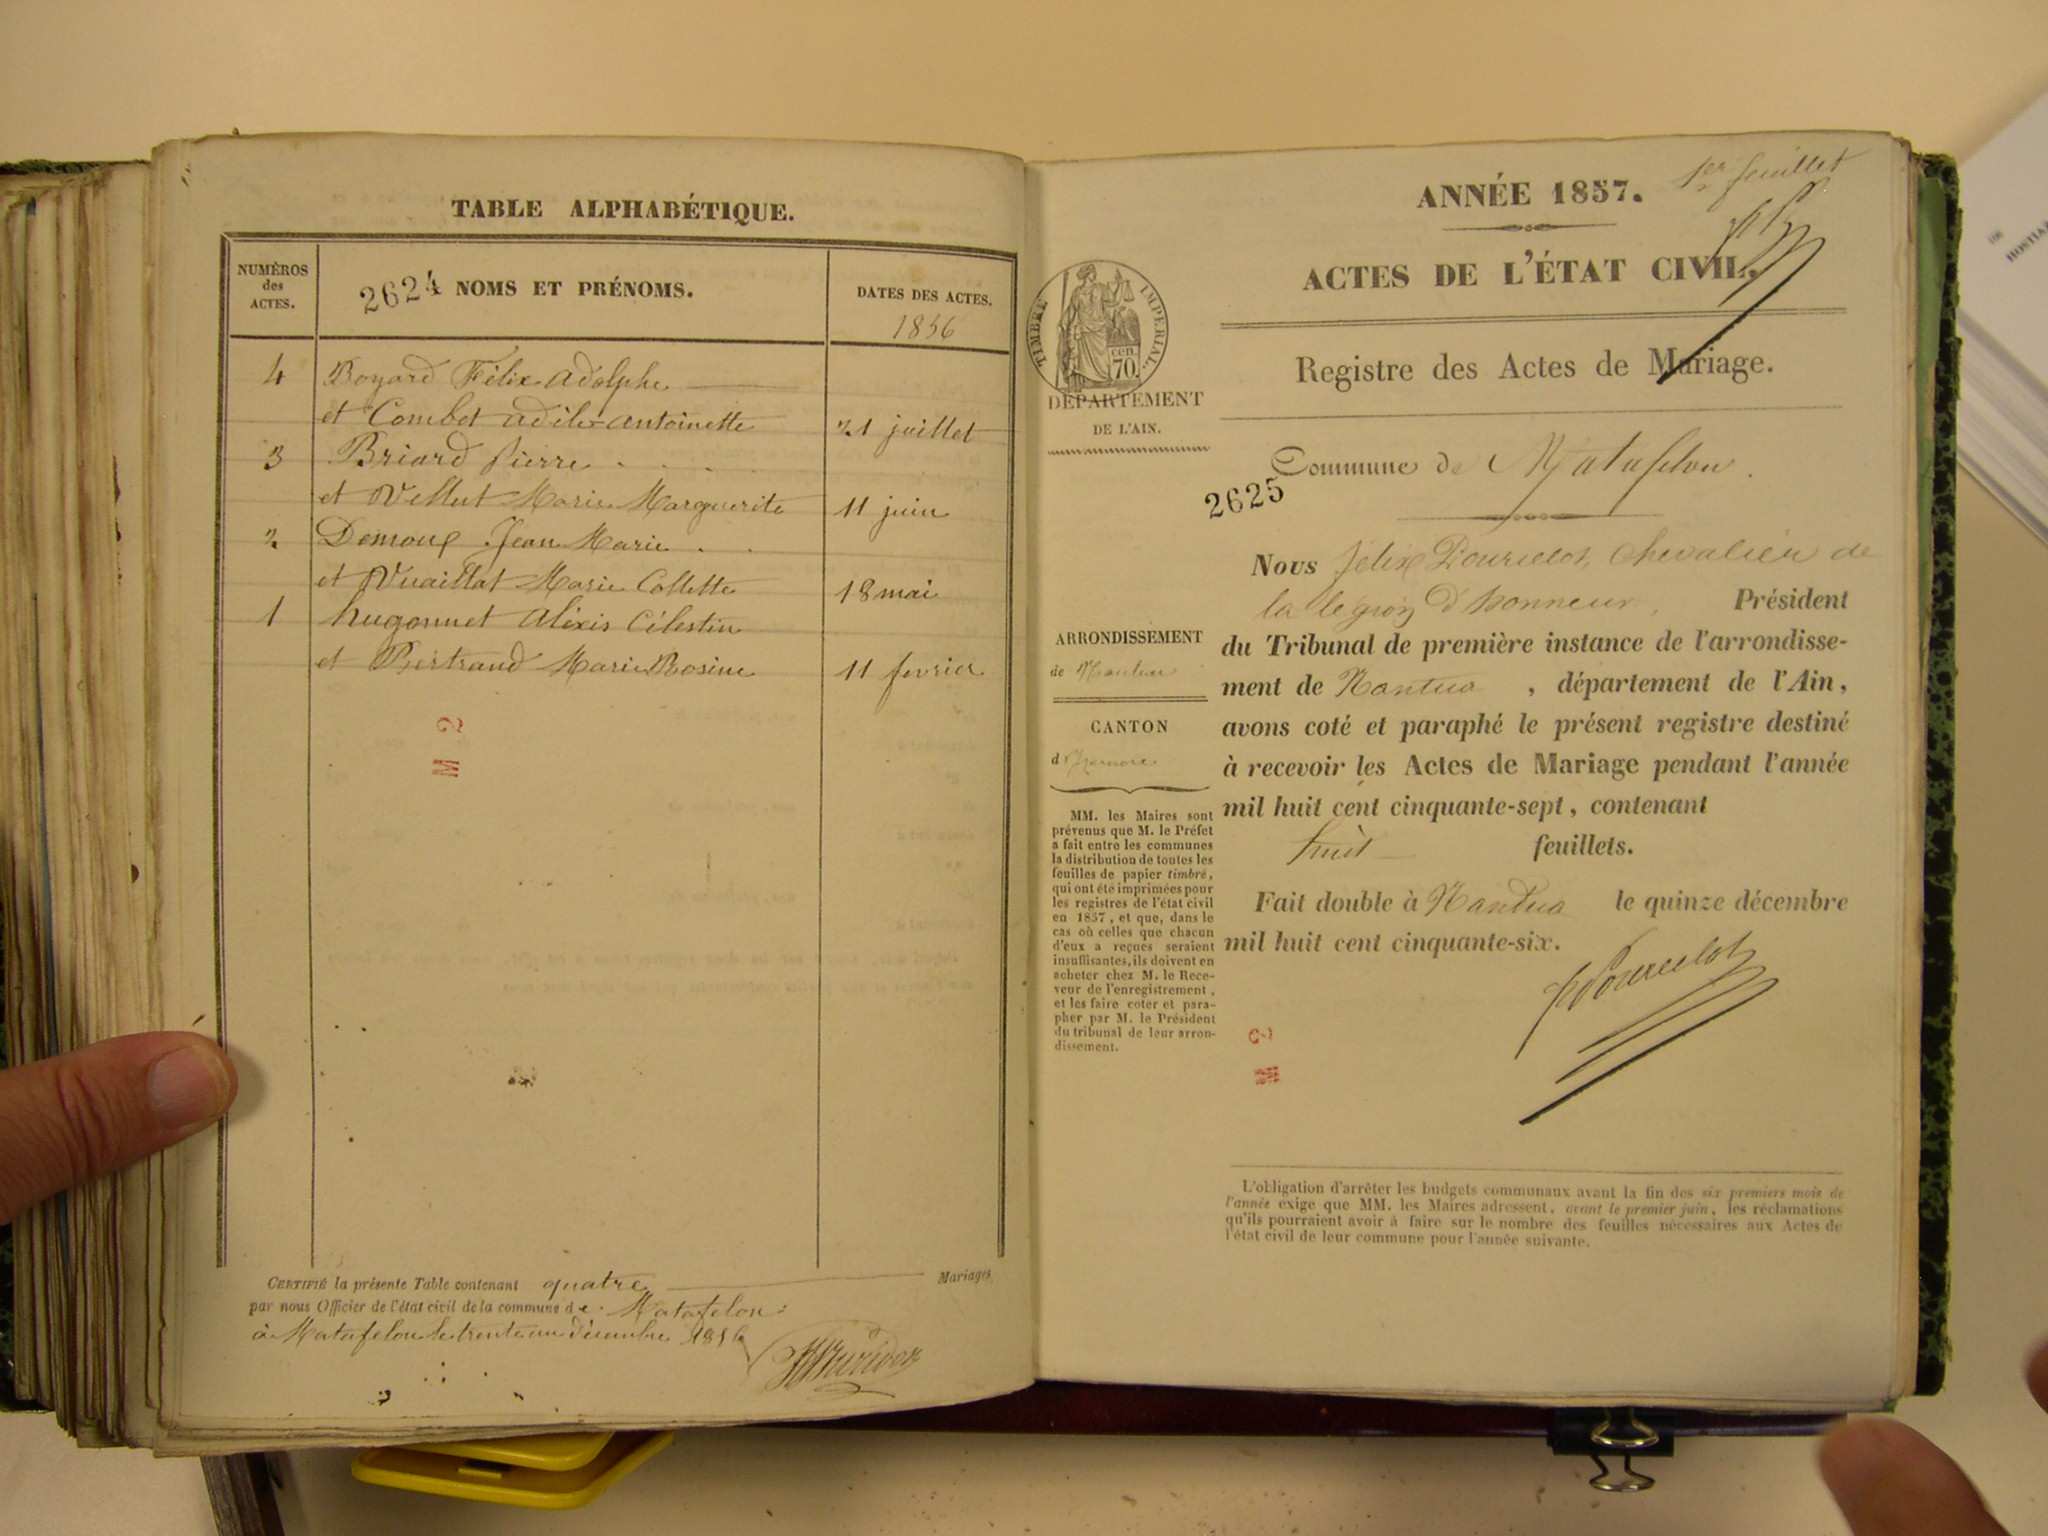 TABLE ALPHABÉTIQUE.
NUMÉROS
des
ACTES.
2624 NOMS ET PRÉNOMS.
DATES DES ACTES.
1856
4 Boyard Félix Adolphe
et Combet adèle antoinette 21 juillet
3 Briard pierre
et Vellut Marie Marguerite 11 juin
2 Jean Marie
et Vuaillat Marie Collette 18 mai
1 hugonnet aléxis Célestin
et Bertrand Marie Rosine 11 fevrier
M 2
CERTIFIÉ la présente Table contenant quatre Mariages,
par nous Officier de l'état civil de la commune de Matafelon
à Matafelon le trente un décembre 1856
1er feuillet
ANNÉE 1857.
ACTES DE L'ÉTAT CIVIL.
TIMBRE IMPERIAL.
70. cen.
Registre des Actes de Mariage.
DÉPARTEMENT
DE L'AIN.
Commune de Matafelon.
2625
Nous félix Pourcelot, Chevalier de
la légion d'honneur, Président
du Tribunal de première instance de l'arrondisse-
ment de Nantua , département de l'Ain,
avons coté et paraphé le présent registre destiné
à recevoir les Actes de Mariage pendant l'année
mil huit cent cinquante-sept, contenant
huit feuillets.
Fait double à Nantua le quinze décembre
mil huit cent cinquante-six.
Pourcelot
ARRONDISSEMENT
de Nantua
CANTON
d'Izernore
MM. les Maires sont
prévenus que M. le Préfet
a fait entre les communes
la distribution de toutes les
feuilles de papier timbré,
qui ont été imprimées pour
les registres de l'état civil
en 1857, et que, dans le
cas où celles que chacun
d'eux a reçues seraient
insuffisantes, ils doivent en
acheter chez M. le Rece-
veur de l'enregistrement,
et les faire coter et para-
pher par M. le Président
du tribunal de leur arron-
dissement.
M 3
L'obligation d'arrêter les budgets communaux avant la fin des six premiers mois de
l'année exige que MM. les Maires adressent, avant le premier juin, les réclamations
qu'ils pourraient avoir à faire sur le nombre des feuilles nécessaires aux Actes de
l'état civil de leur commune pour l'année suivante.